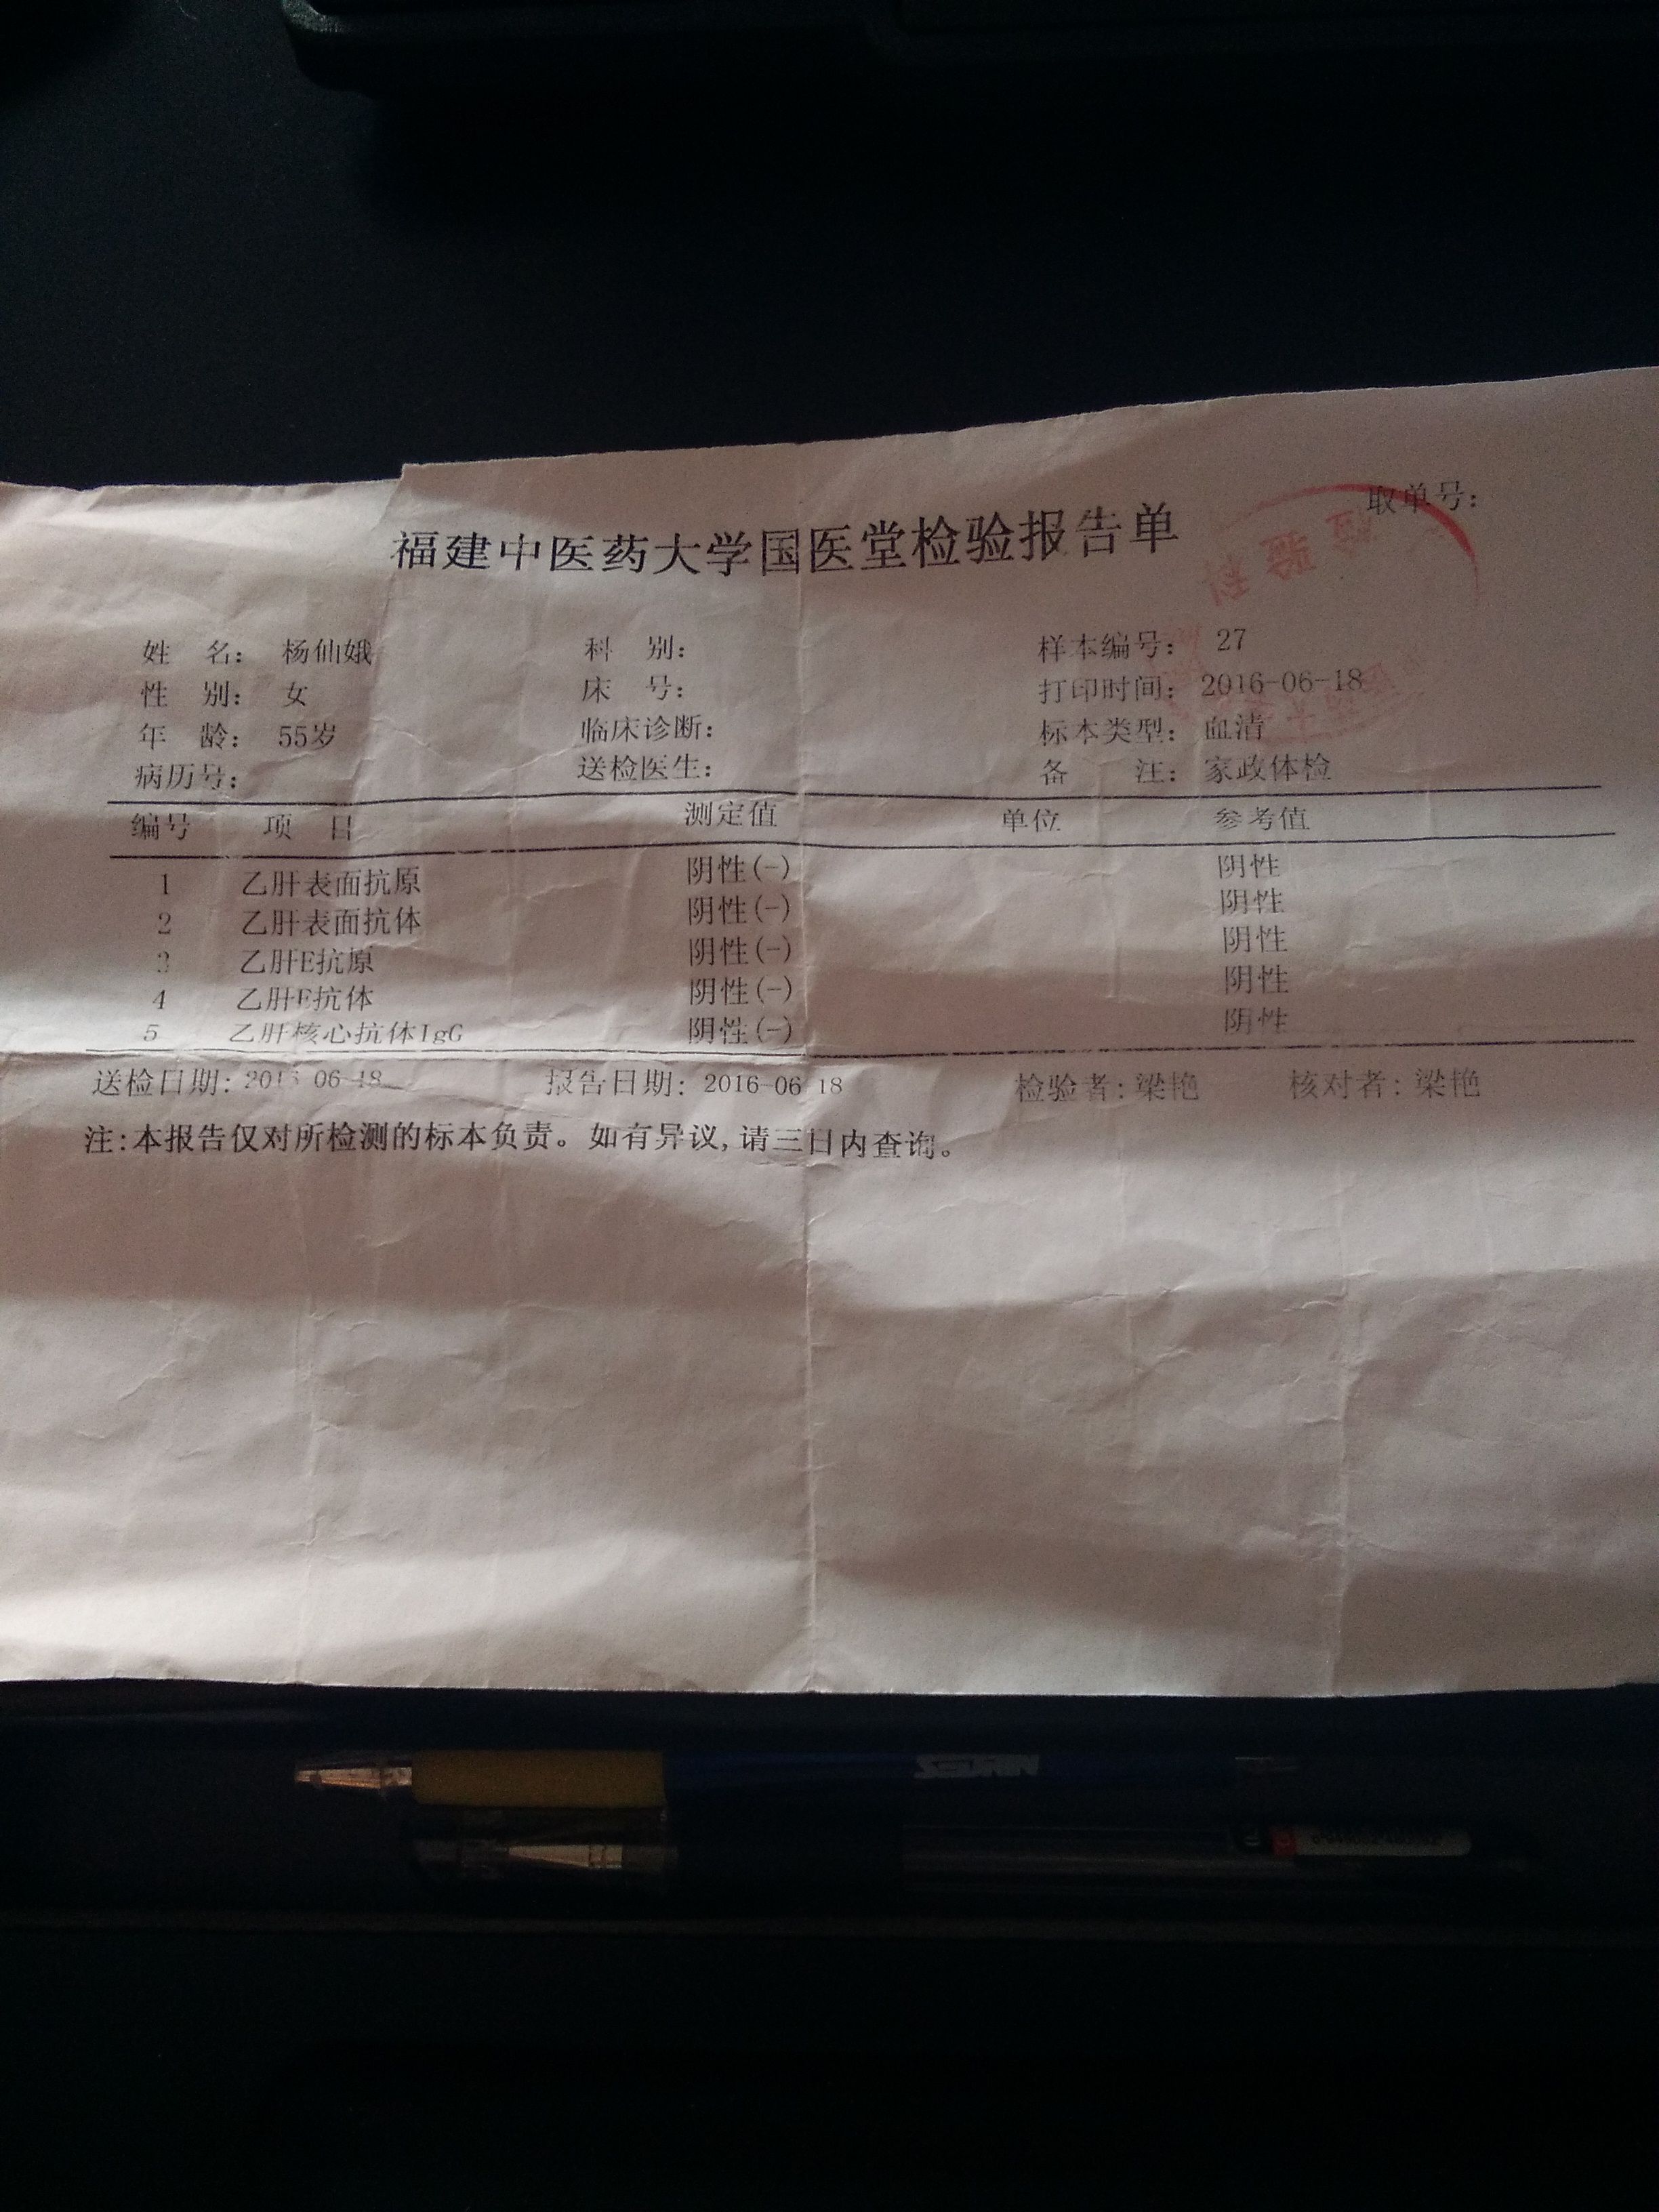 取单号:
福建中医药大学国医堂检验报告单
姓 名: 杨仙娥 科 别: 样本编号: 27
性 别: 女 床 号: 打印时间: 2016-06-18
年 龄: 55岁 临床诊断: 标本类型: 血清
病历号: 送检医生: 备 注: 家政体检
编号 项 目 测定值 单位 参考值
1 乙肝表面抗原 阴性(-) 阴性
2 乙肝表面抗体 阴性(-) 阴性
3 乙肝E抗原 阴性(-) 阴性
4 乙肝E抗体 阴性(-) 阴性
5 乙肝核心抗体IgG 阴性(-) 阴性
送检日期: 2016-06-18 报告日期: 2016-06-18 检验者: 梁艳 核对者: 梁艳
注:本报告仅对所检测的标本负责。如有异议,请三日内查询。